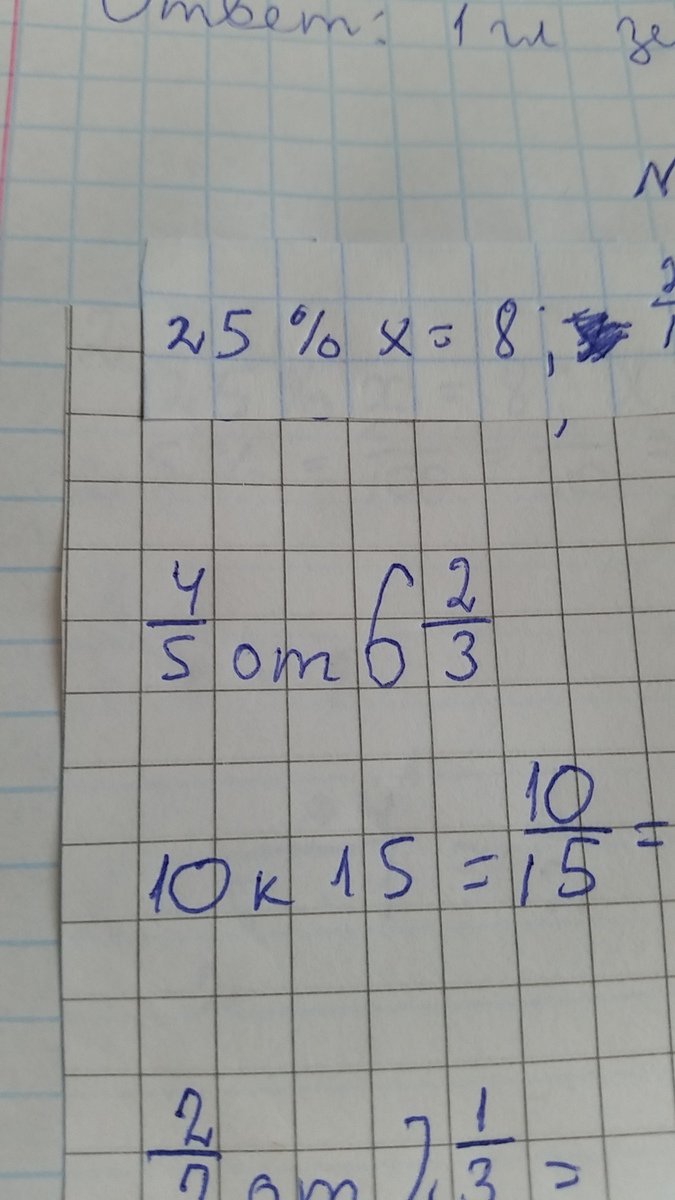 Ответ: 1 гл
N
25 % x = 8;
4/5 от 6 2/3
10 к 15 = 10/15 =
2/7 от 1/3 =